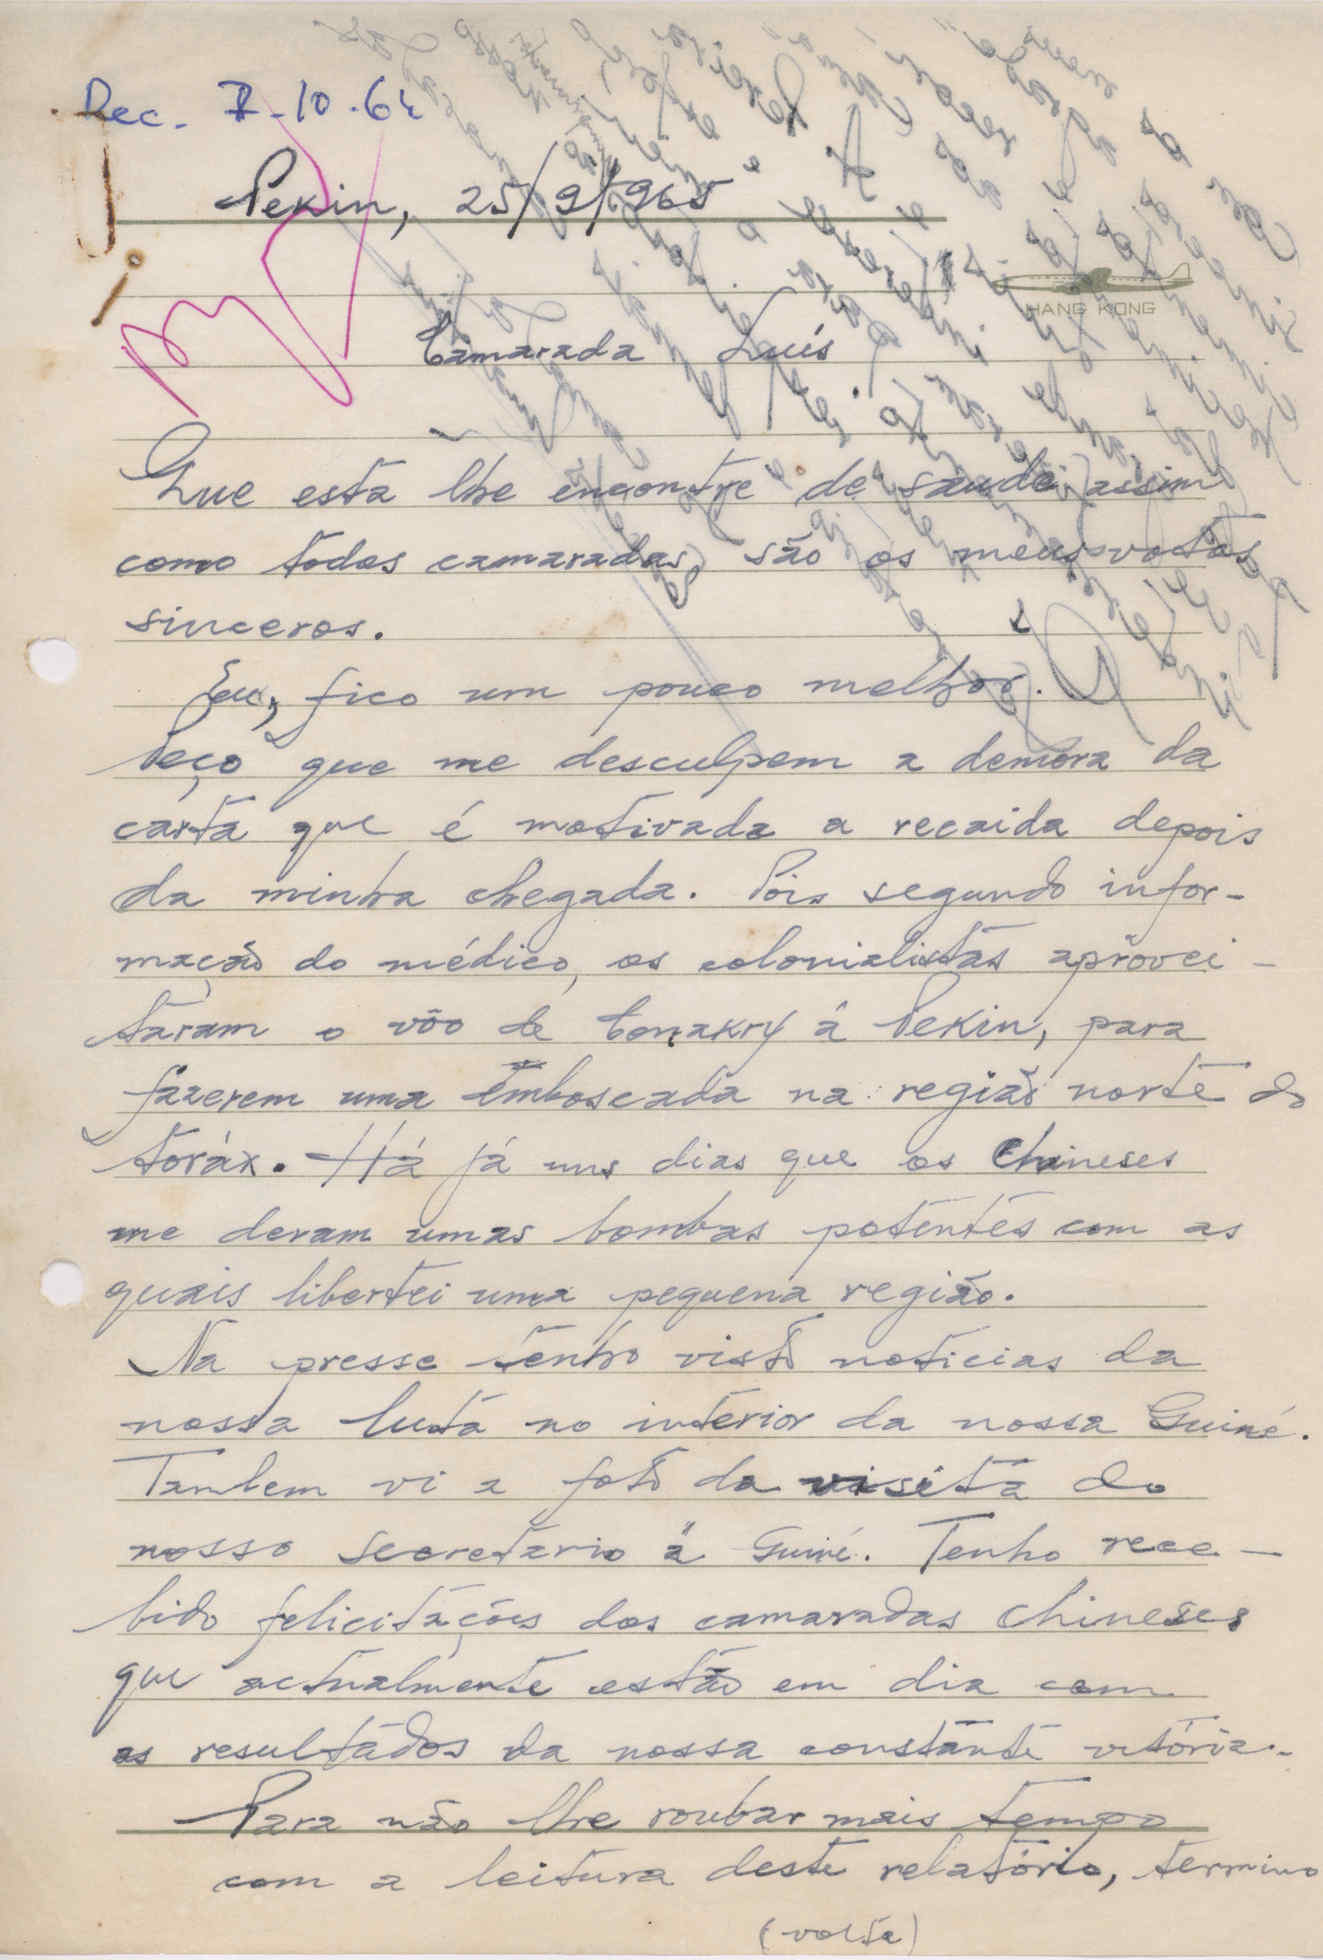 Rec. 7-10.65
Pekin, 25/9/965
HANG KONG
Camarada Luís
Que esta lhe encontre de saude, assim
como todos camaradas, são os meus votos
sinceros.
Eu, fico um pouco melhor.
Peço que me desculpem a demora da
carta que é motivada a recaida depois
da minha chegada. Pois segundo infor-
mação do médico, os colonialistas aprovei-
taram o vôo de Conakry á Pekin, para
fazerem uma emboscada na região norte do
toráx. Há já uns dias que os Chineses
me deram umas bombas potentes com as
quais libertei uma pequena região.
Na presse tenho visto noticias da
nossa luta no interior da nossa Guiné.
Tambem vi a foto da visita do
nosso secretario á Guiné. Tenho rece-
bido felicitações dos camaradas Chineses
que actualmente estão em dia com
os resultados da nossa constante vitória.
Para não lhe roubar mais tempo
com a leitura deste relatório, termino
(volta)